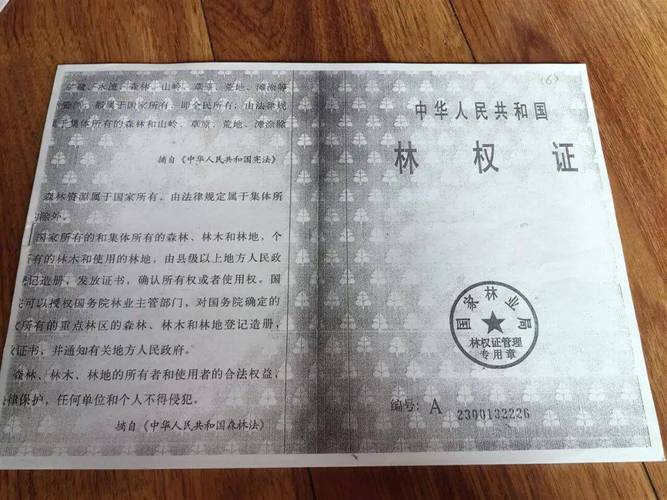 、水流、森林、山岭、草原、荒地、滩涂等
都属于国家所有，即全民所有；由法律规
于集体所有的森林和山岭、草原、荒地、滩涂除
摘自《中华人民共和国宪法》
森林资源属于国家所有，由法律规定属于集体所
除外。
国家所有的和集体所有的森林、林木和林地，个
有的林木和使用的林地，由县级以上地方人民政
记造册，发放证书，确认所有权或者使用权。国
可以授权国务院林业主管部门，对国务院确定的
所有的重点林区的森林、林木和林地登记造册，
证书，并通知有关地方人民政府。
森林、林木、林地的所有者和使用者的合法权益，
律保护，任何单位和个人不得侵犯。
摘自《中华人民共和国森林法》
(6)
中华人民共和国
林权证
国家林业局
林权证管理
专用章
编号：A 2300132226